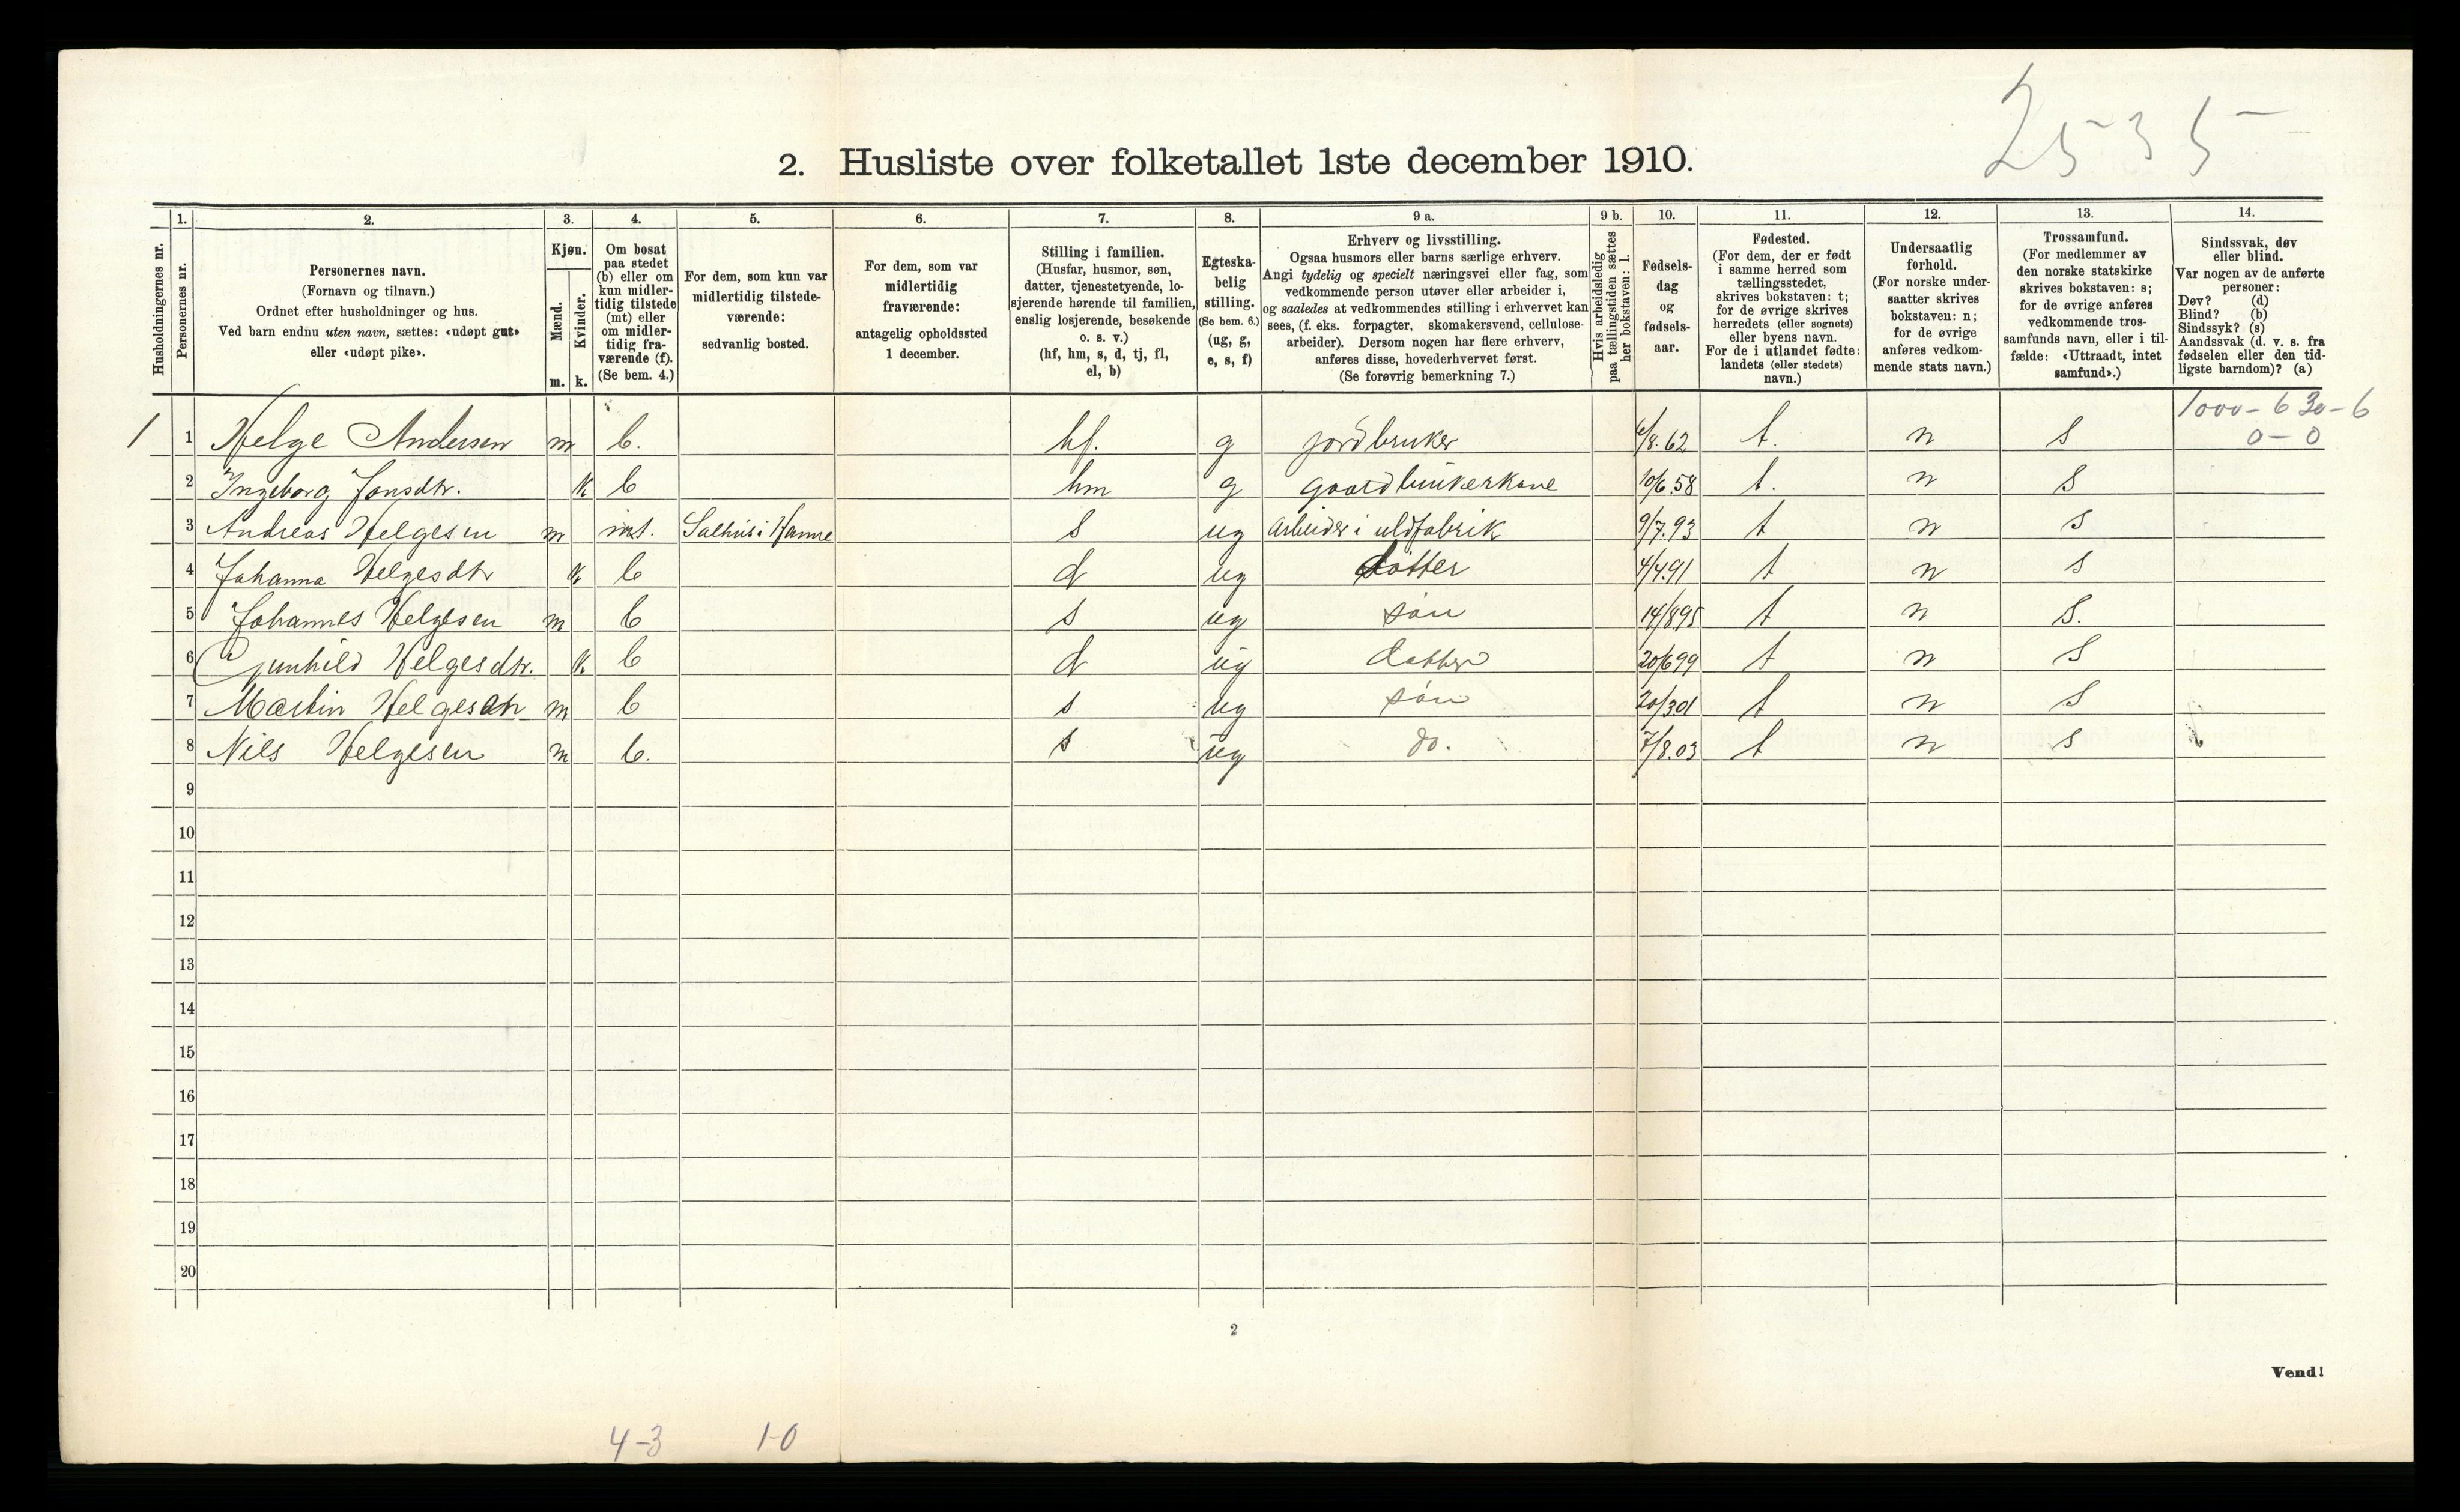 2535
2. Husliste over folketallet 1ste december 1910.
Husholdningernes nr.
1. Personernes nr.
2. Personernes navn.
(Fornavn og tilnavn.)
Ordnet efter husholdninger og hus.
Ved barn endnu uten navn, sættes: «udøpt gut»
eller «udøpt pike».
3. Kjøn.
Mænd. m.
Kvinder. k.
4. Om bosat
paa stedet
(b) eller om
kun midler-
tidig tilstede
(mt) eller
om midler-
tidig fra-
værende (f).
(Se bem. 4.)
5. For dem, som kun var
midlertidig tilstede-
værende:
sedvanlig bosted.
6. For dem, som var
midlertidig
fraværende:
antagelig opholdssted
1 december.
7. Stilling i familien.
(Husfar, husmor, søn,
datter, tjenestetyende, lo-
sjerende hørende til familien,
enslig losjerende, besøkende
o. s. v.)
(hf, hm, s, d, tj, fl,
el, b)
8. Egteska-
belig
stilling.
(Se bem. 6.)
(ug, g,
e, s, f)
9 a. Erhverv og livsstilling.
Ogsaa husmors eller barns særlige erhverv.
Angi tydelig og specielt næringsvei eller fag, som
vedkommende person utøver eller arbeider i,
og saaledes at vedkommendes stilling i erhvervet kan
sees, (f. eks. forpagter, skomakersvend, cellulose-
arbeider). Dersom nogen har flere erhverv,
anføres disse, hovederhvervet først.
(Se forøvrig bemerkning 7.)
9 b. Hvis arbeidsledig
paa tællingstiden sættes
her bokstaven: l.
10. Fødsels-
dag
og
fødsels-
aar.
11. Fødested.
(For dem, der er født
i samme herred som
tællingsstedet,
skrives bokstaven: t;
for de øvrige skrives
herredets (eller sognets)
eller byens navn.
For de i utlandet fødte:
landets (eller stedets)
navn.)
12. Undersaatlig
forhold.
(For norske under-
saatter skrives
bokstaven: n;
for de øvrige
anføres vedkom-
mende stats navn.)
13. Trossamfund.
(For medlemmer av
den norske statskirke
skrives bokstaven: s;
for de øvrige anføres
vedkommende tros-
samfunds navn, eller i til-
fælde: «Uttraadt, intet
samfund».)
14. Sindssvak, døv
eller blind.
Var nogen av de anførte
personer:
Døv? (d)
Blind? (b)
Sindssyk? (s)
Aandssvak (d. v. s. fra
fødselen eller den tid-
ligste barndom)? (a)
1000 - 6 30 - 6
0 - 0
1 1 Helge Andersen m b. hf. g jordbruker 6/8.62 t. n s
2 Ingeborg Jonsdtr. k b hm g gaardbrukerkone 10/6.58 t. n s
3 Andreas Helgesen m mt. Salhus i Hamre s ug arbeider i uldfabrik 9/7.93 t n s
4 Johanna Helgesdtr k b d ug datter 4/4.91 t n s
5 Johannes Helgesen m b s ug søn 14/8.95 t n s.
6 Gunhild Helgesdtr. k b d ug datter 20/6 99 t n s
7 Martin Helgesen m b s ug søn 20/3.01 t n s
8 Nils Helgesen m b. s ug do. 7/8.03 t n s
9
10
11
12
13
14
15
16
17
18
19
20
2
Vend!
4-3 1-0